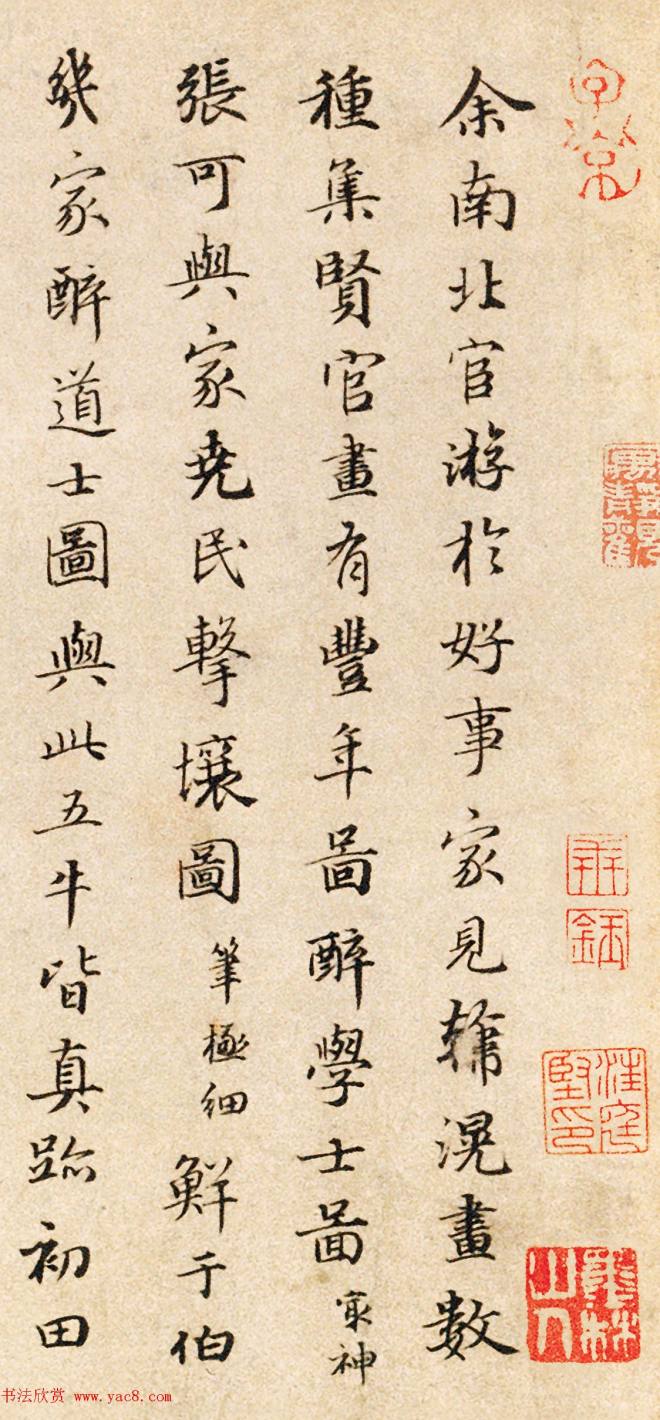 子京
余南北官游於好事家見韓滉畫數
種集賢官畫有豐年啚醉學士啚㝡神
張可與家堯民擊壤圖筆極細鮮于伯
幾家醉道士圖與此五牛皆真跡初田
墨林山人
书法欣赏 www.yac8.com